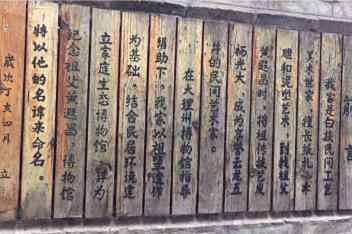 前言
我家是白族民间工
美术世家，擅长纸扎、木
雕和泥塑艺术，到我祖父
黄遐昌时，将祖传技艺发
扬光大，成为享誉云龙五
井的民间艺术家。
在大理州博物馆指导
帮助下，我家以祖望遗作
为基础，结合民居环境建
立家庭生态博物馆，并为
纪念祖父黄遐昌，博物馆
特以他的名讳录命名。
岁次丁亥四月 立